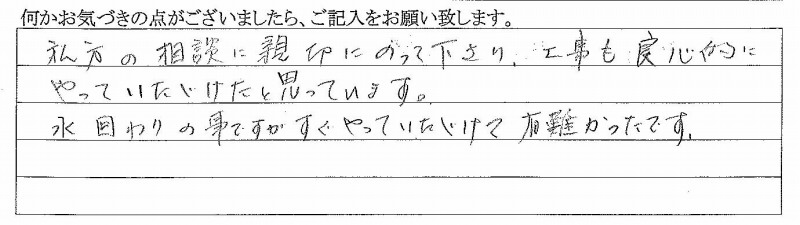 何かお気づきの点がございましたら、ご記入をお願い致します。
私方の相談に親切にのって下さり、工事も良心的に
やっていただけたと思っています。
水回わりの事ですがすぐやっていただけて有難かったです。